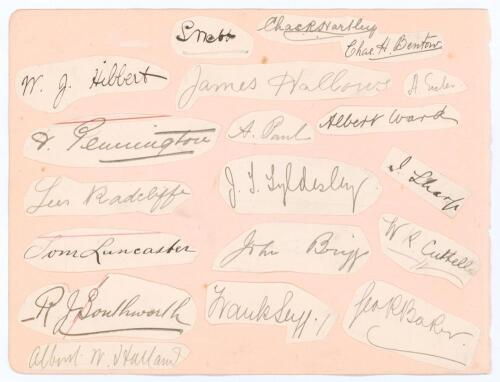 S Webb
Chas R Hartley
Chas. H. Benton
W. J. Hibbert
James Hallows
A. Eccles
A. Paul
Albert Ward
H. Pennington
Lees Radcliffe
J. T. Tyldesley
J. Sharp
Tom Lancaster
John Brigg
W R Cuttell
R. J. Southworth
Frank Sugg
Geo R Baker
Albert W. Hallam